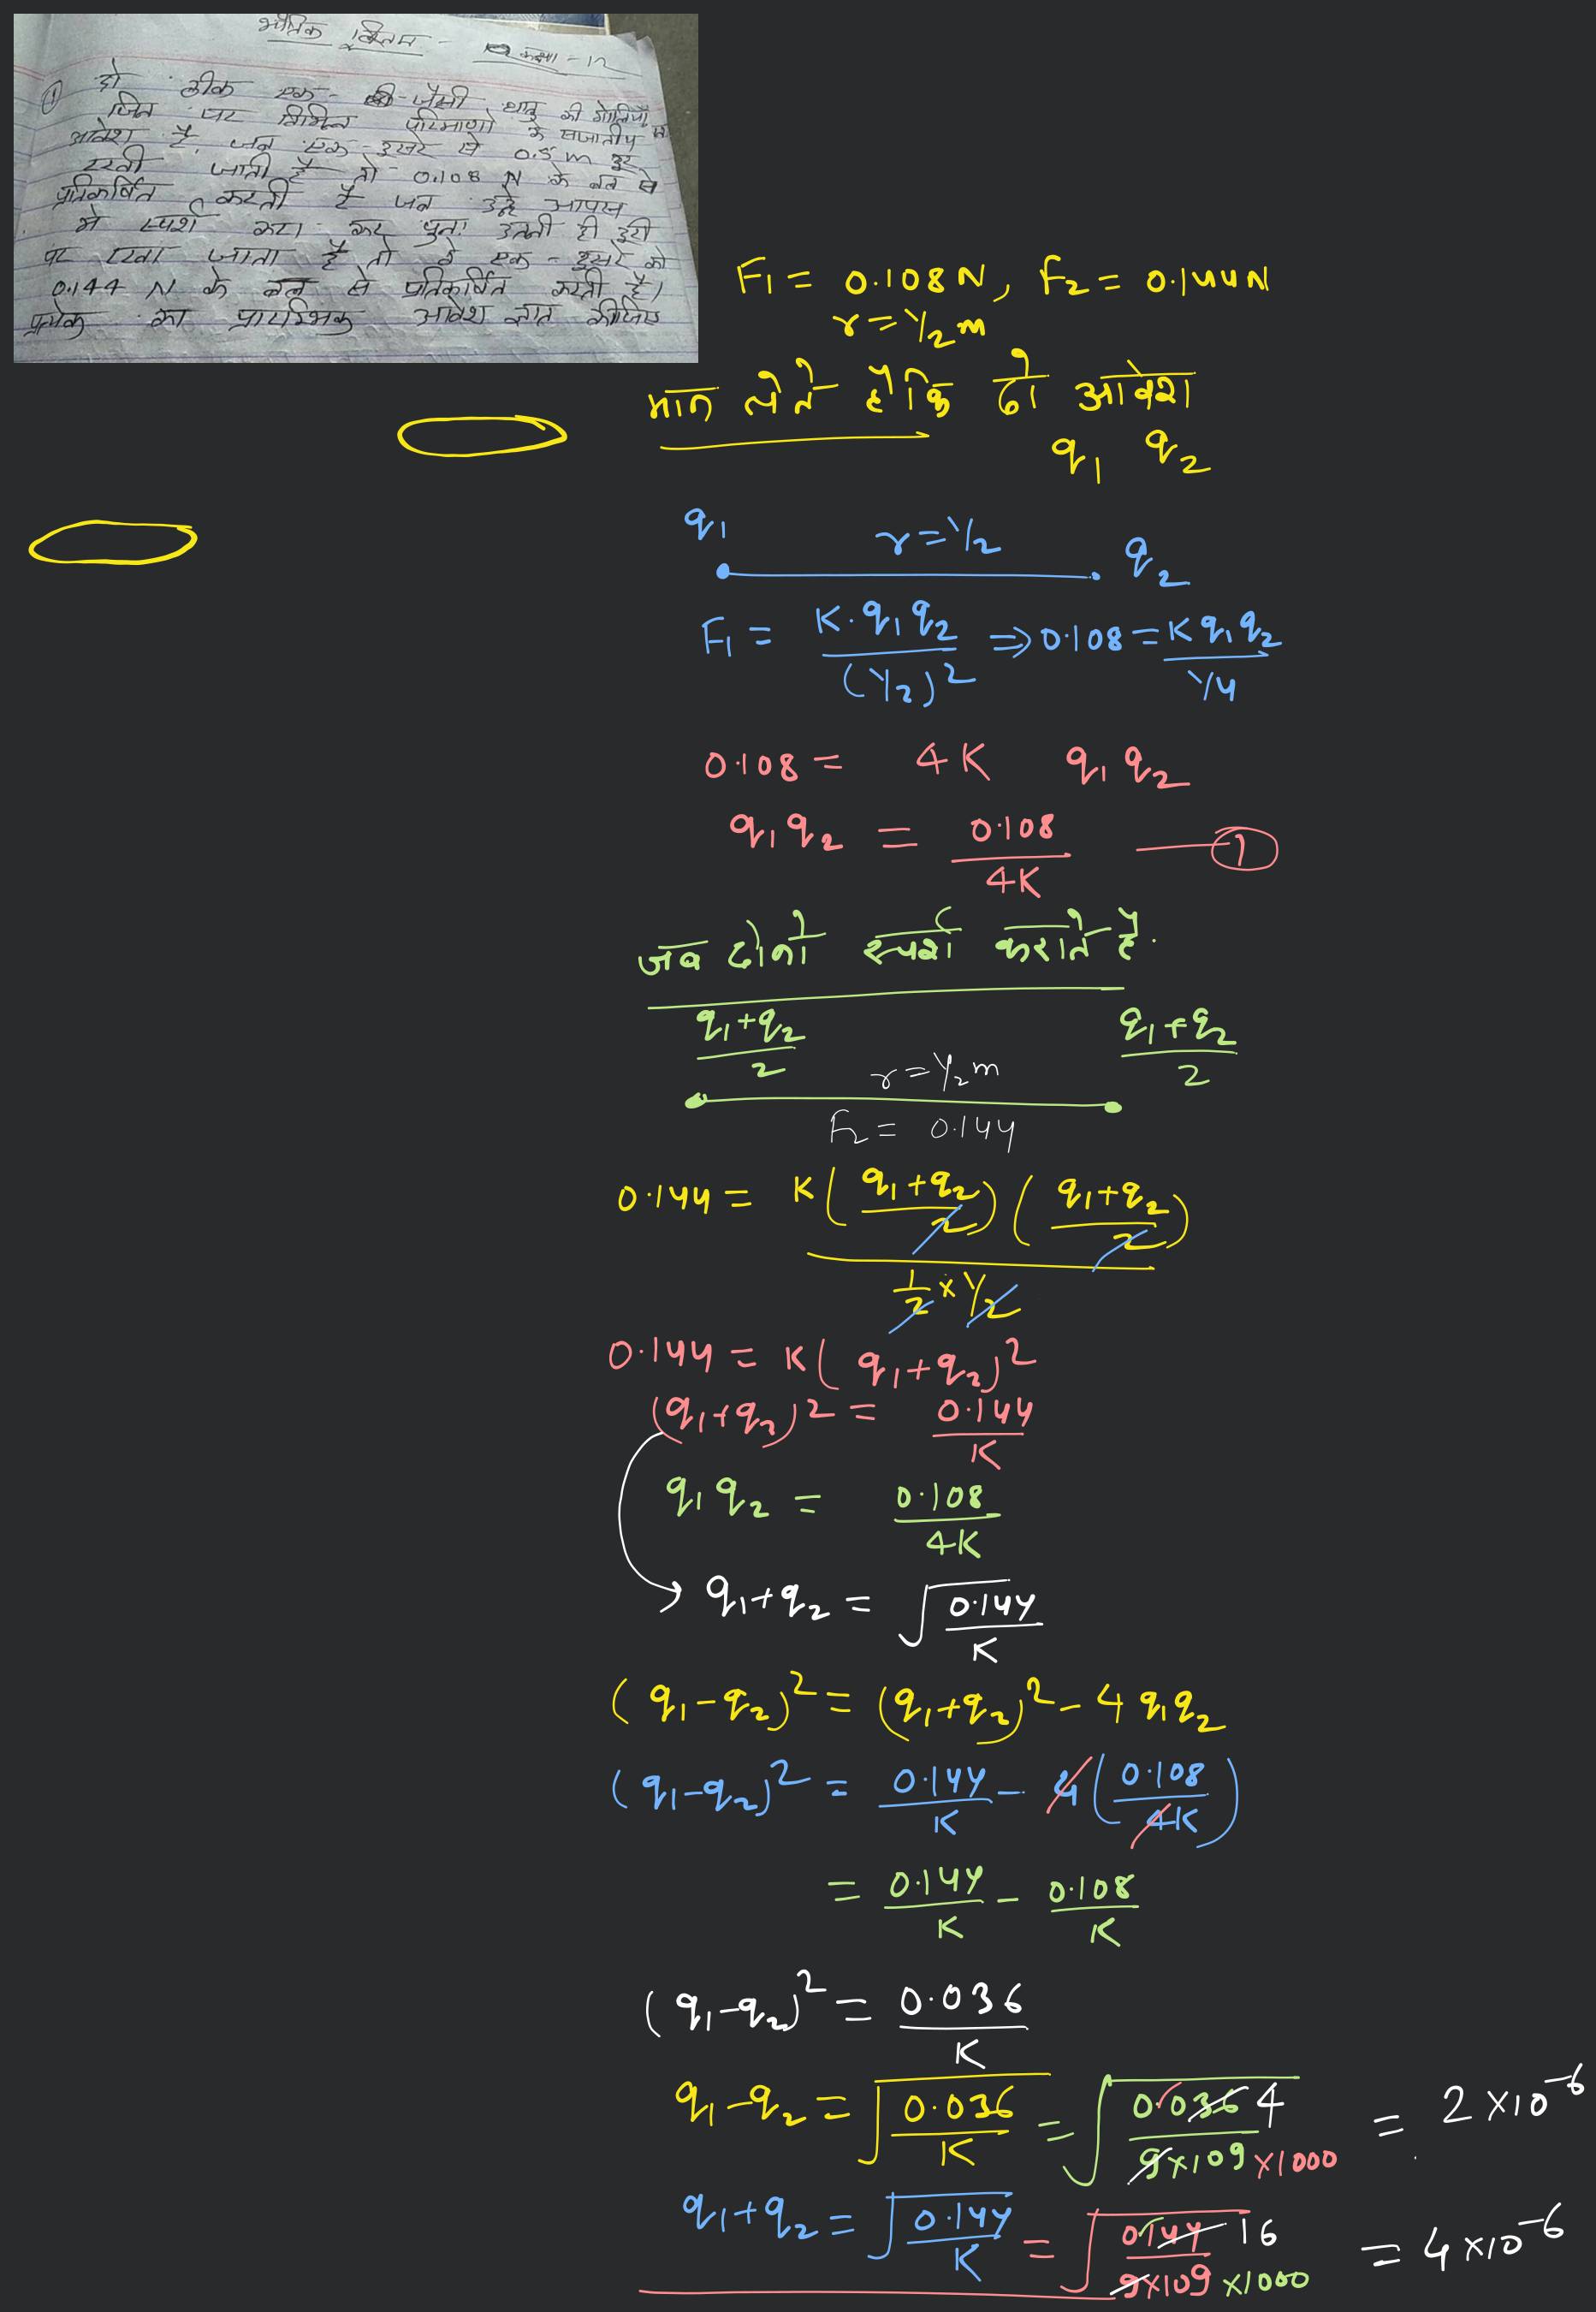 भौतिक विज्ञान - कक्षा - 12
① दो ठीक एक - जैसी धातु की गोलियाँ
जिन पर विभिन्न परिमाणो के सजातीय
आवेश है, जब एक - दूसरे से 0.5 m दूर
रखी जाती है तो 0.108 N के बल से
प्रतिकर्षित करती है जब उन्हे आपस
मे स्पर्श करा कर पुनः उतनी ही दूरी
पर रखा जाता है तो वे एक - दूसरे को
0.144 N के बल से प्रतिकर्षित करती है।
प्रत्येक का प्रारम्भिक आवेश ज्ञात कीजिए
F₁ = 0.108 N, F₂ = 0.144 N
r = 1/2 m
मान लेते है कि दो आवेश
q₁ q₂
q₁ r = 1/2 q₂
F₁ = K·q₁q₂/(1/2)² ⇒ 0.108 = Kq₁q₂/(1/4)
0.108 = 4K q₁q₂
q₁q₂ = 0.108/4K — ①
जब दोनो स्पर्श कराते है.
(q₁+q₂)/2 (q₁+q₂)/2
r = 1/2 m
F₂ = 0.144
0.144 = K((q₁+q₂)/2)((q₁+q₂)/2)/(1/2 × 1/2)
0.144 = K(q₁+q₂)²
(q₁+q₂)² = 0.144/K
q₁q₂ = 0.108/4K
→ q₁+q₂ = √(0.144/K)
(q₁-q₂)² = (q₁+q₂)² - 4q₁q₂
(q₁-q₂)² = 0.144/K - 4(0.108/4K)
= 0.144/K - 0.108/K
(q₁-q₂)² = 0.036/K
q₁-q₂ = √(0.036/K) = √(0.036 4/9×10⁹×1000) = 2×10⁻⁶
q₁+q₂ = √(0.144/K) = √(0.144 16/9×10⁹×1000) = 4×10⁻⁶